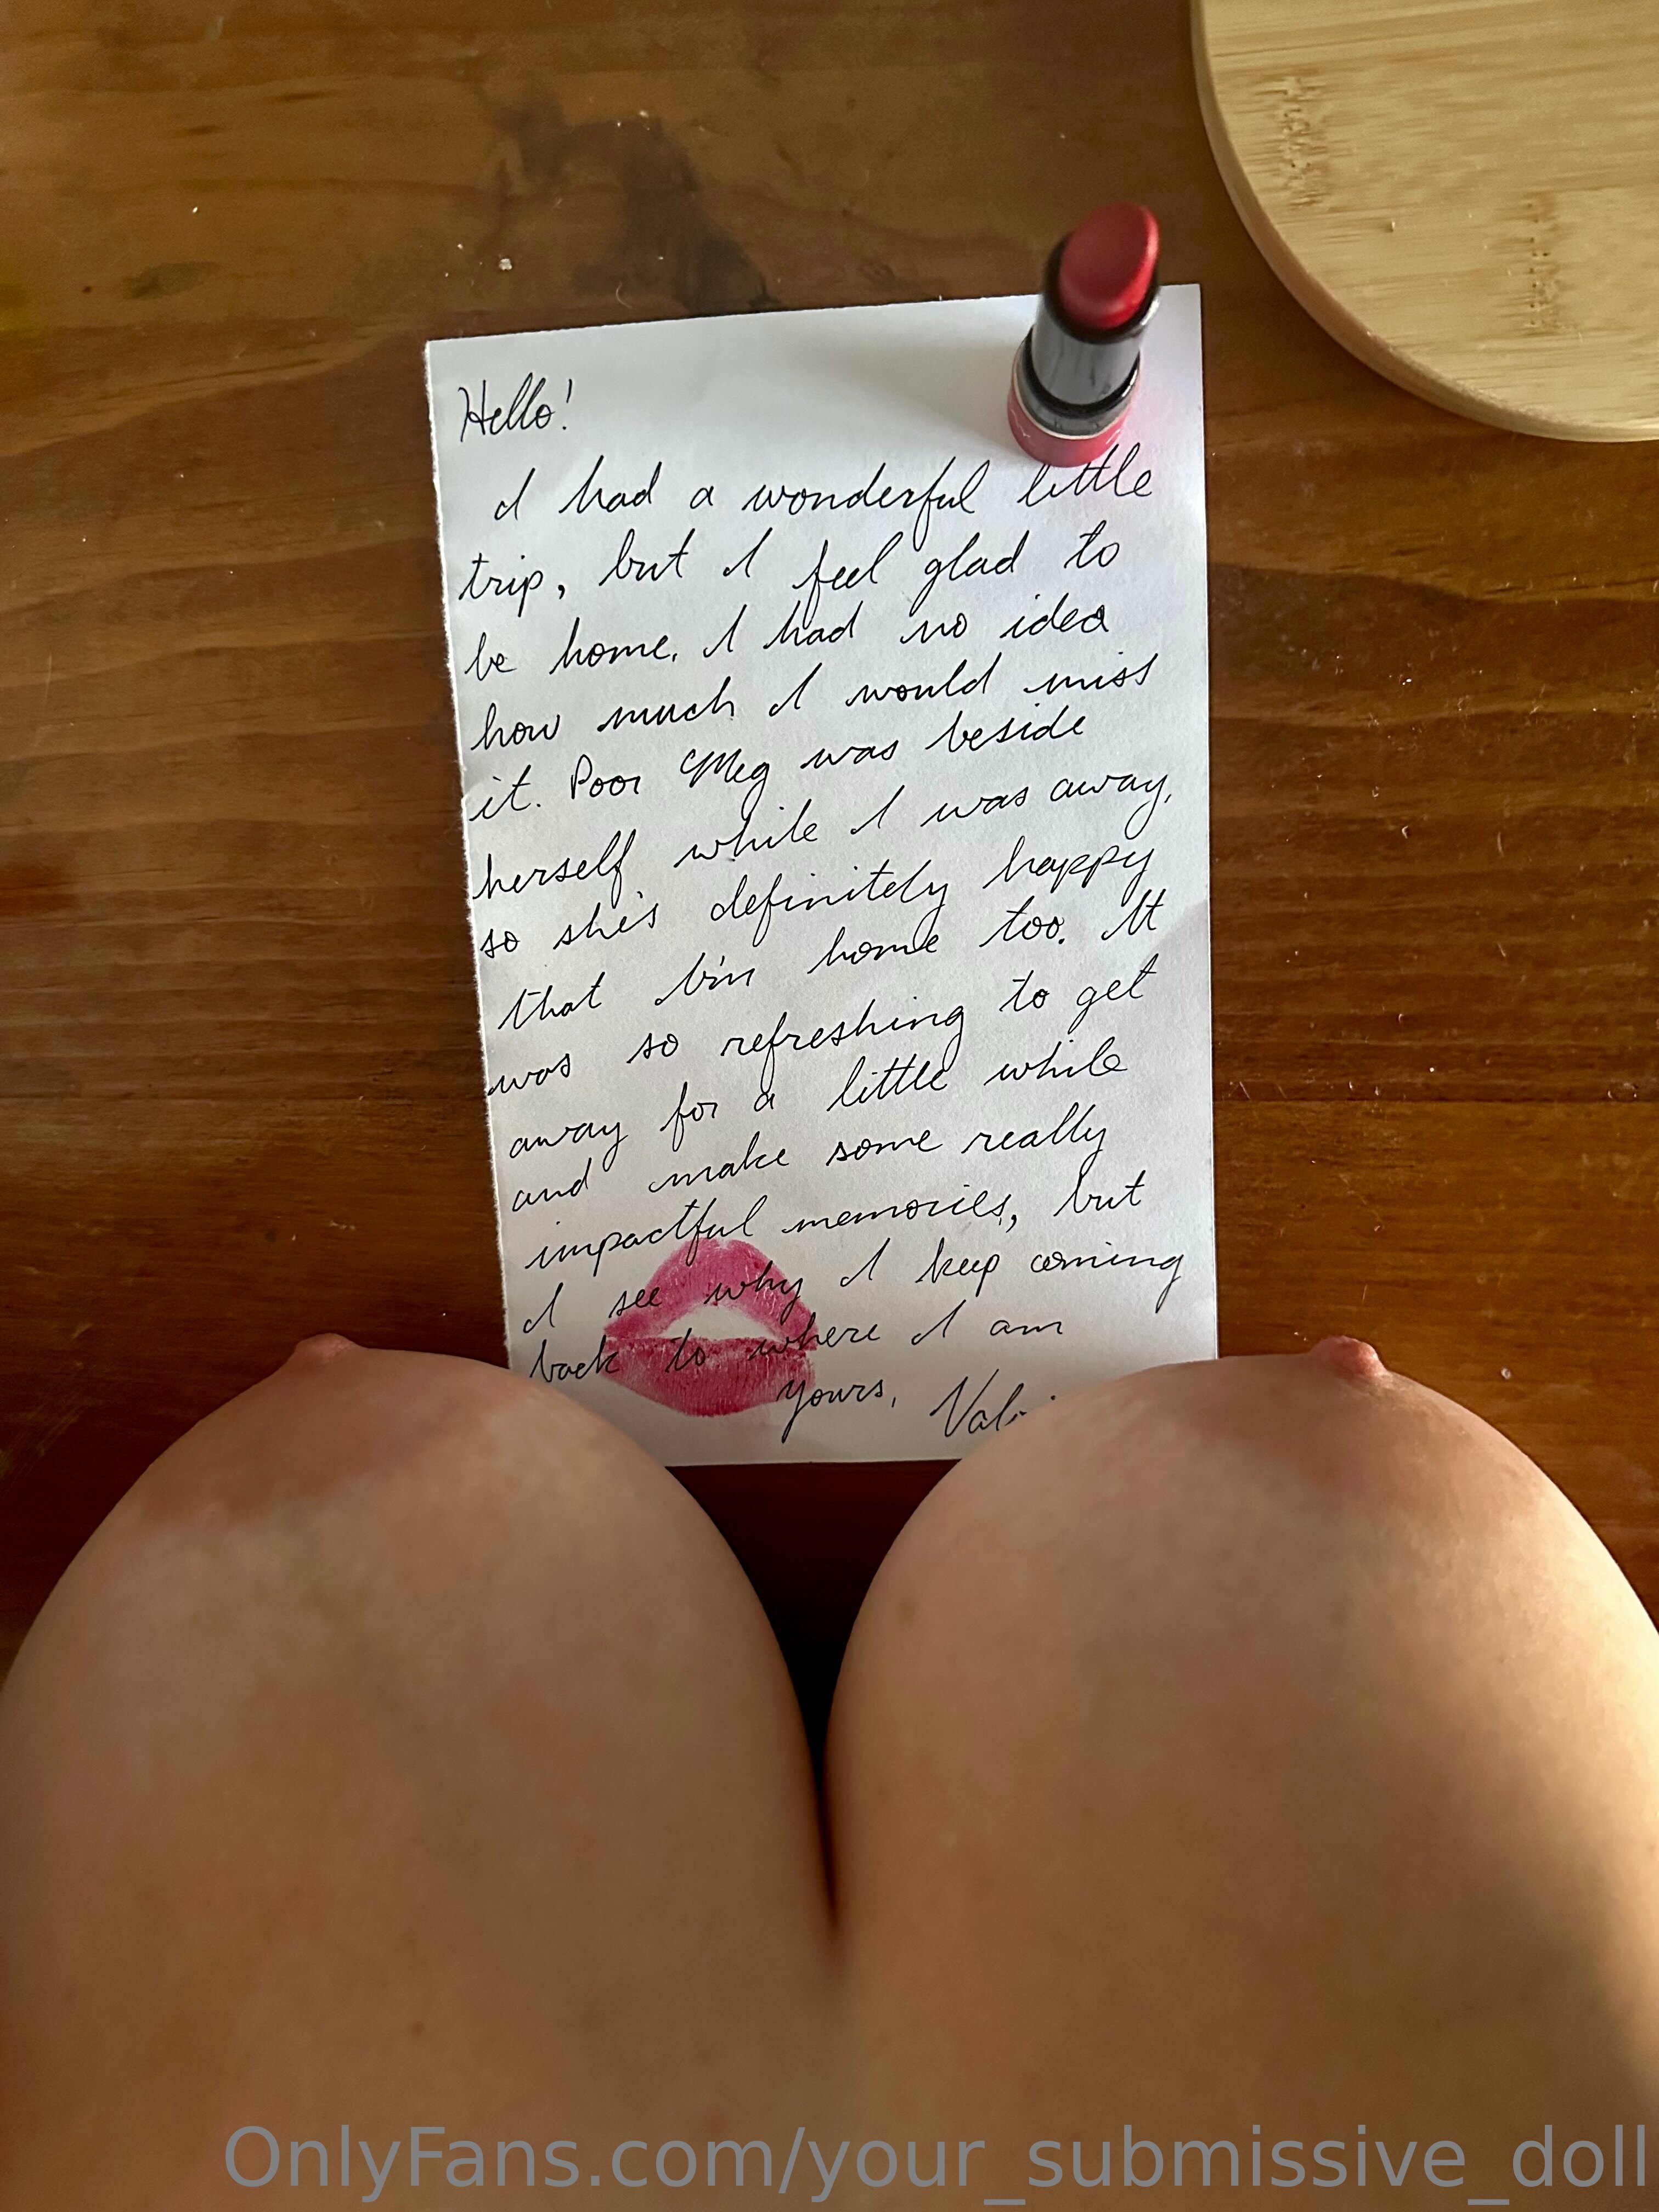 Hello!
I had a wonderful little
trip, but I feel glad to
be home. I had no idea
how much I would miss
it. Poor Meg was beside
herself while I was away,
so she's definitely happy
that I'm home too. It
was so refreshing to get
away for a little while
and make some really
impactful memories, but
I see why I keep coming
back to where I am
Yours,
OnlyFans.com/your_submissive_doll